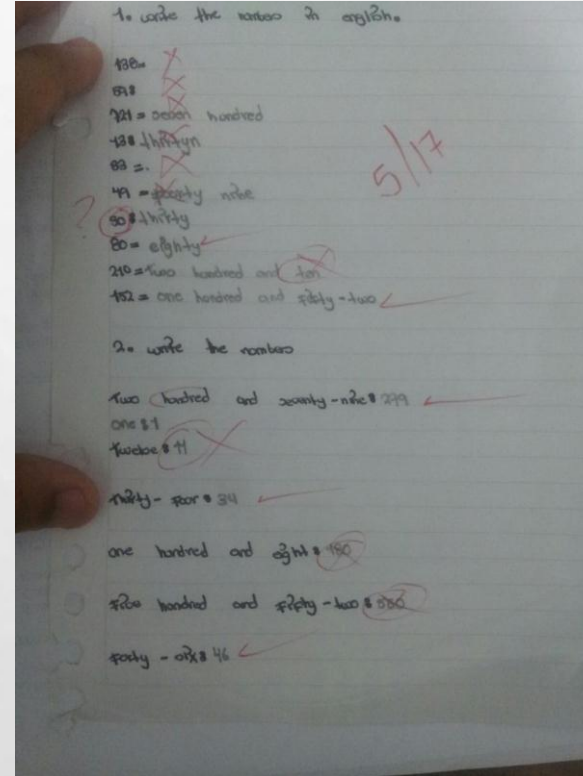 1. write the numbers in english.
138=
598
721 = seven hundred
138 thirtyn
83 =.
49 = fourty nine
30 = thirty
80 = eighty
210 = Two hundred and ten
152 = one hundred and fifty-two
5/17
?
2. write the numbers
Two hundred and seventy-nine = 279
one = 1
Twelve = 11
thirty-four = 34
one hundred and eight = 180
five hundred and fifty-two =
forty - six = 46